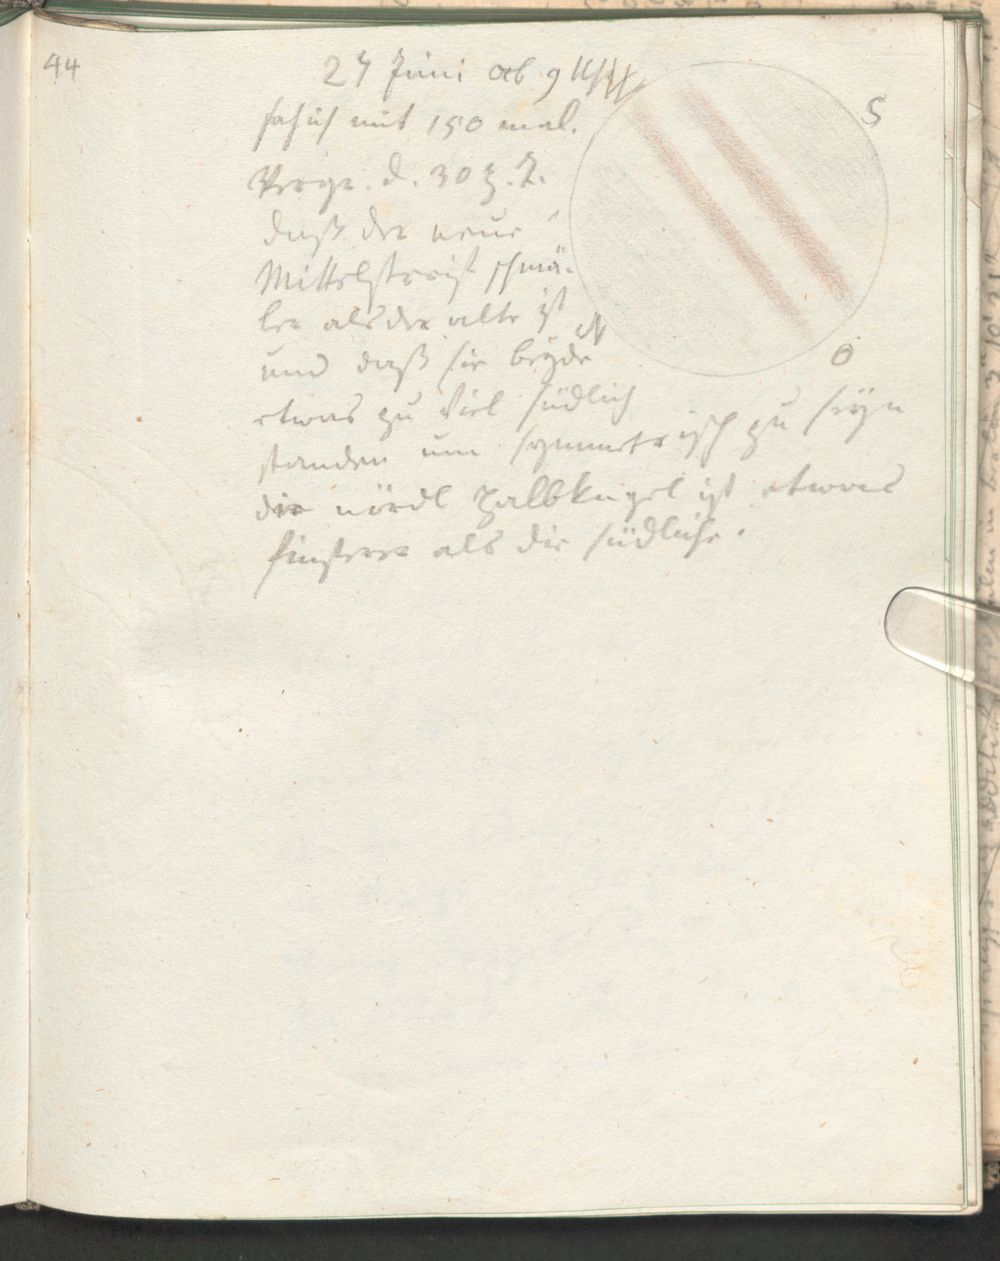 44
27 Juni ab 9 Uhr
sah ich mit 150 mal.
Vergr. d. 30 z. F.
daß der neue
Mittelstreif schmä-
ler als der alte ist
N
und daß sie beyde
etwas zu viel südlich
standen um symmetrisch zu seyn
die nördl Halbkugel ist etwas
finsterer als die südliche.
S
O